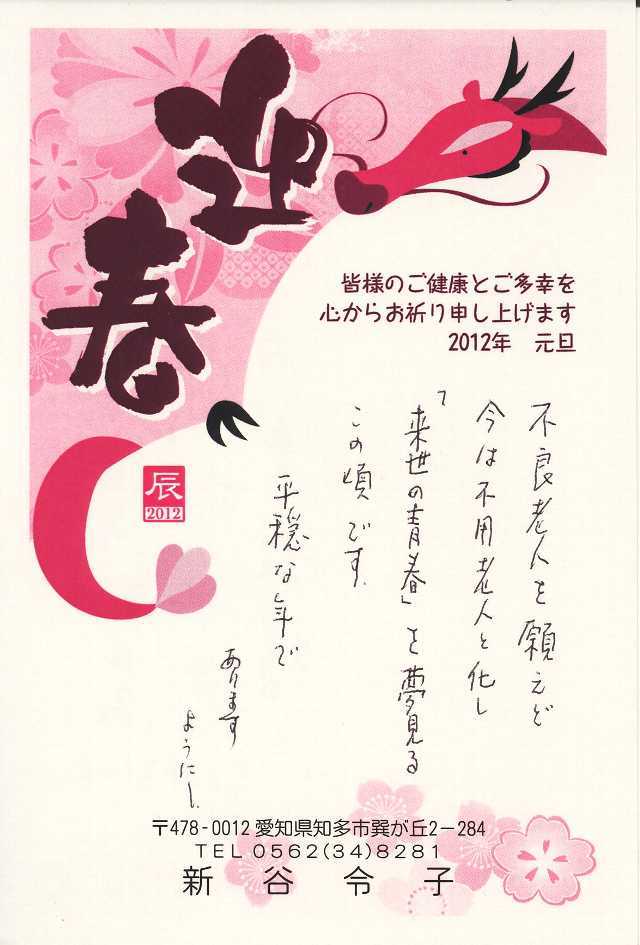 迎春
皆様のご健康とご多幸を
心からお祈り申し上げます
2012年　元旦
不良老人を願えど
今は不用老人と化し
「来世の青春」を夢見る
この頃です.
平穏な年で
あります
ように!
辰
2012
〒478-0012 愛知県知多市巽が丘2-284
TEL 0562(34)8281
新谷令子